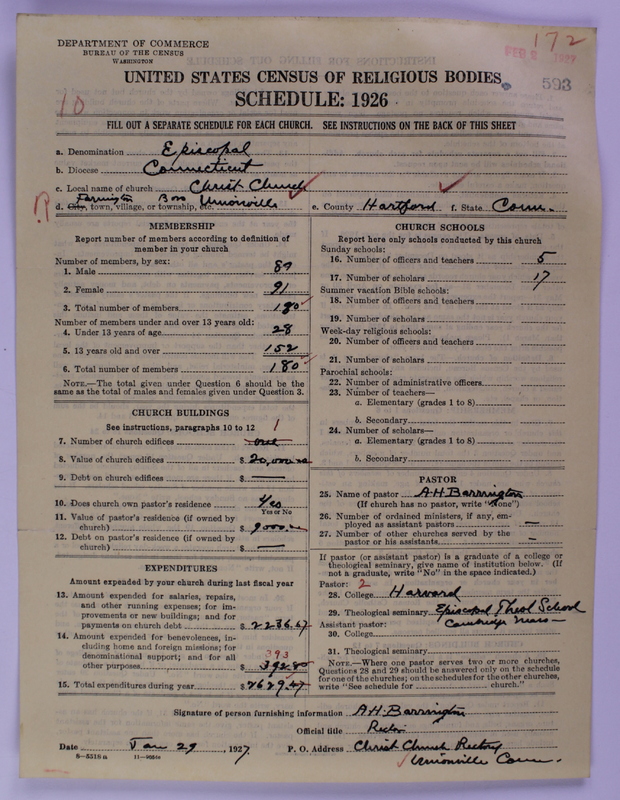 DEPARTMENT OF COMMERCE
BUREAU OF THE CENSUS
WASHINGTON
172
FEB 2 1927
593
UNITED STATES CENSUS OF RELIGIOUS BODIES
SCHEDULE: 1926
10
FILL OUT A SEPARATE SCHEDULE FOR EACH CHURCH. SEE INSTRUCTIONS ON THE BACK OF THIS SHEET
a. Denomination Episcopal
b. Diocese Connecticut
c. Local name of church Christ Church
Farmington Boro Unionville
d. City, town, village, or township, etc. e. County Hartford f. State Conn.
MEMBERSHIP
Report number of members according to definition of
member in your church
Number of members, by sex:
1. Male 89
2. Female 91
3. Total number of members 180
Number of members under and over 13 years old:
4. Under 13 years of age 28
5. 13 years old and over 152
6. Total number of members 180
NOTE.—The total given under Question 6 should be the
same as the total of males and females given under Question 3.
CHURCH BUILDINGS
See instructions, paragraphs 10 to 12 1
7. Number of church edifices one
8. Value of church edifices $ 20,000.00
9. Debt on church edifices $ —
10. Does church own pastor's residence Yes
Yes or No
11. Value of pastor's residence (if owned by
church) $ 9000.00
12. Debt on pastor's residence (if owned by
church) $ —
EXPENDITURES
Amount expended by your church during last fiscal year
13. Amount expended for salaries, repairs,
and other running expenses; for im-
provements or new buildings; and for
payments on church debt $ 2236.67
14. Amount expended for benevolences, in-
cluding home and foreign missions; for
denominational support; and for all 393
other purposes $ 392.80
15. Total expenditures during year $ 2629.47
CHURCH SCHOOLS
Report here only schools conducted by this church
Sunday schools:
16. Number of officers and teachers 5
17. Number of scholars 17
Summer vacation Bible schools:
18. Number of officers and teachers
19. Number of scholars
Week-day religious schools:
20. Number of officers and teachers
21. Number of scholars
Parochial schools:
22. Number of administrative officers
23. Number of teachers—
a. Elementary (grades 1 to 8)
b. Secondary
24. Number of scholars—
a. Elementary (grades 1 to 8)
b. Secondary
PASTOR
25. Name of pastor A.H. Barrington
(If church has no pastor, write "None")
26. Number of ordained ministers, if any, em-
ployed as assistant pastors —
27. Number of other churches served by the
pastor or his assistants —
If pastor (or assistant pastor) is a graduate of a college or
theological seminary, give name of institution below. (If
not a graduate, write "No" in the space indicated.)
Pastor: 2
28. College Harvard
29. Theological seminary Episcopal Theol School
Assistant pastor: Cambridge Mass
30. College
31. Theological seminary
NOTE.—Where one pastor serves two or more churches,
Questions 28 and 29 should be answered only on the schedule
for one of the churches; on the schedules for the other churches,
write "See schedule for church."
Signature of person furnishing information A.H. Barrington
Official title Rector
Date Jan 29, 1927. P. O. Address Christ Church Rectory
8—5518a 11—9055a Unionville Conn.